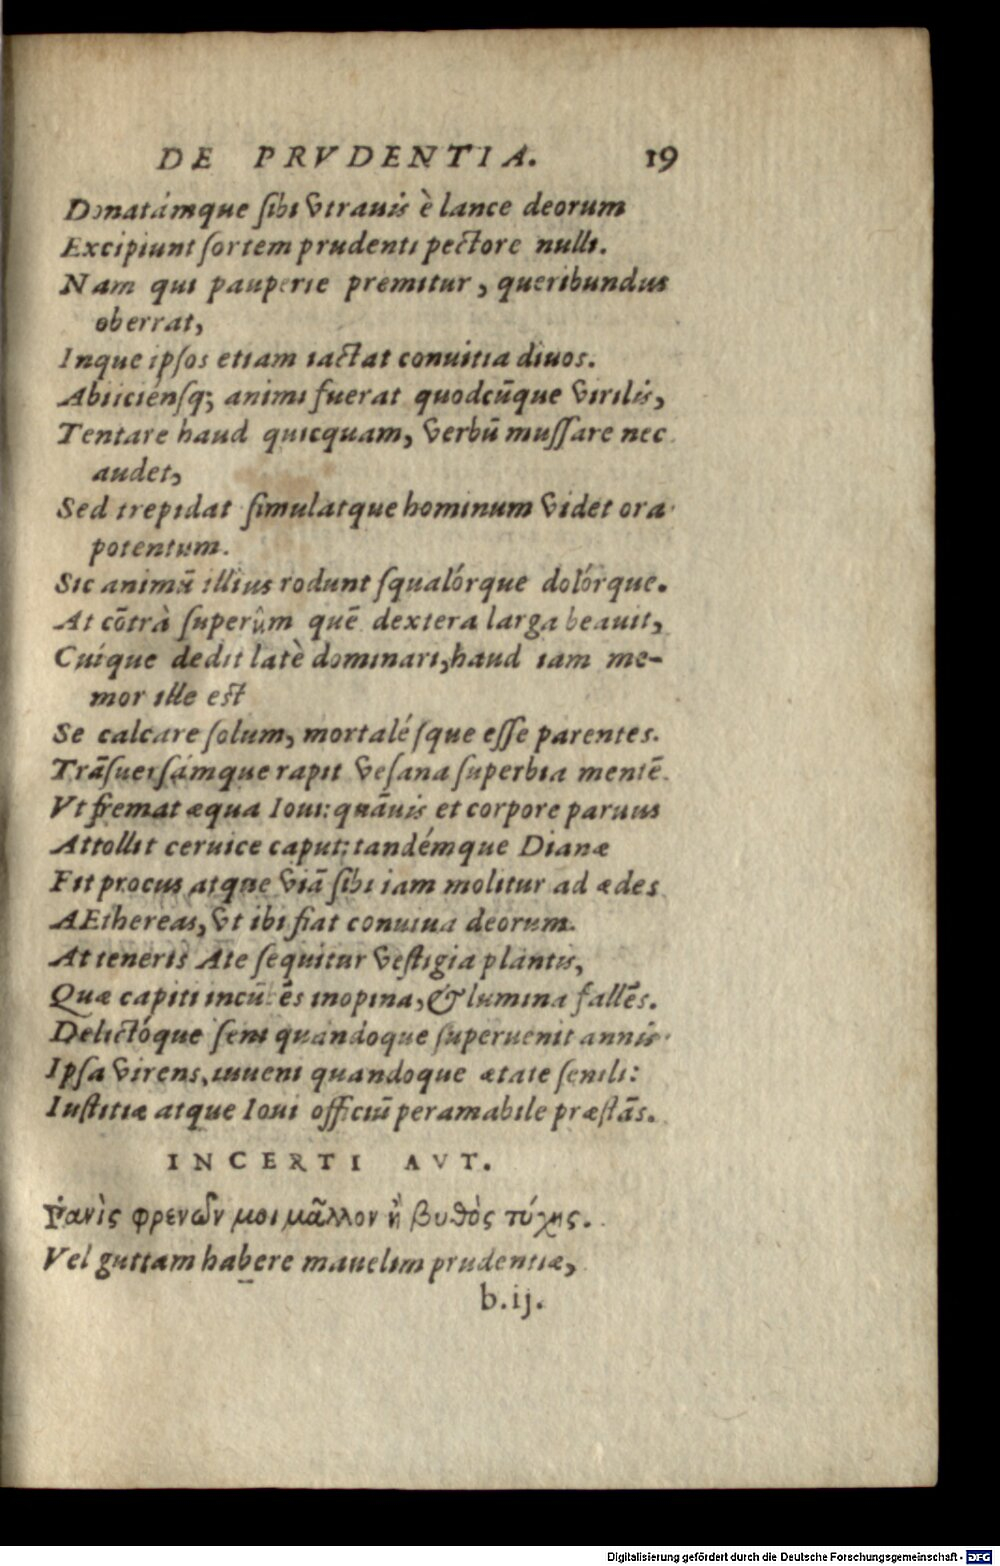 DE PRVDENTIA. 19
Donatámque sibi vtrauis è lance deorum
Excipiunt sortem prudenti pectore nulli.
Nam qui pauperie premitur, queribundus
oberrat,
Inque ipsos etiam iactat conuitia diuos.
Abiiciénsq; animi fuerat quodcūque virilis,
Tentare haud quicquam, verbū mussare nec
audet,
Sed trepidat simulatque hominum videt ora
potentum.
Sic animū illius rodunt squalórque dolórque.
At cōtrà superûm quē dextera larga beauit,
Cuíque dedit latè dominari, haud iam me-
mor ille est
Se calcare solum, mortalésque esse parentes.
Trāsuersámque rapit vesana superbia mentē.
Vt fremat æqua Ioui: quāuis et corpore paruus
Attollit ceruice caput: tandémque Dianæ
Fit procus atque viā sibi iam molitur ad ædes
AEthereas, vt ibi fiat conuiua deorum.
At teneris Ate sequitur vestigia plantis,
Quæ capiti incūbēs inopina, & lumina fallēs.
Delictóque seni quandoque superuenit annis
Ipsa virens, iuueni quandoque ætate senili:
Iustitiæ atque Ioui officiū peramabile præstās.
INCERTI AVT.
Ῥανὶς φρενῶν μοι μᾶλλον ἢ βυθὸς τύχης.
Vel guttam habere mauelim prudentiæ,
b.ij.
Digitalisierung gefördert durch die Deutsche Forschungsgemeinschaft - DFG